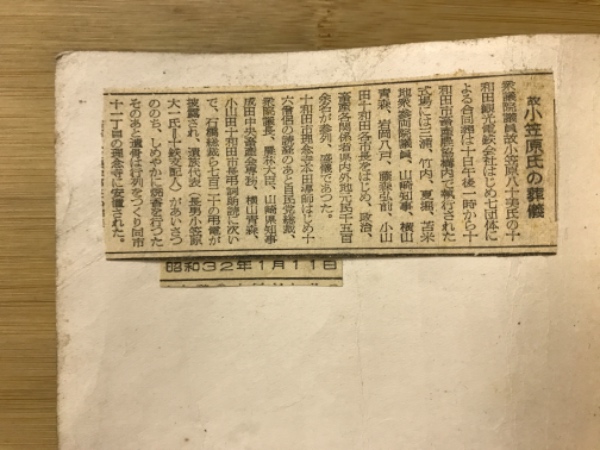 故小笠原氏の葬儀
衆議院議員故小笠原八十美氏の十
和田観光電鉄会社はじめ七団体に
よる合同葬は十日午後一時から十
和田市畜産農協構内で執行された
式場には三浦、竹内、夏堀、苫米
地衆参両院議員、山崎知事、横山
青森、岩岡八戸、藤森弘前、小山
田十和田各市長をはじめ、政治、
畜産各関係者県内外地元民千五百
余名が参列、盛儀であつた。
十和田市理念寺本田導師はじめ十
六僧侶の読経のあと自民党総裁、
衆院議長、農林大臣、山崎県知事
成田中央畜産会専務、横山青森、
小山田十和田市長弔詞朗読に次い
で、石橋総裁ら七百二十の弔電が
披露され、遺族代表（長男小笠原
大一氏＝十鉄支配人）があいさつ
ののち、しめやかに焼香を行つた
そのあと遺骨は行列をつくり同市
十一丁目の理念寺に安置された。
昭和32年1月11日